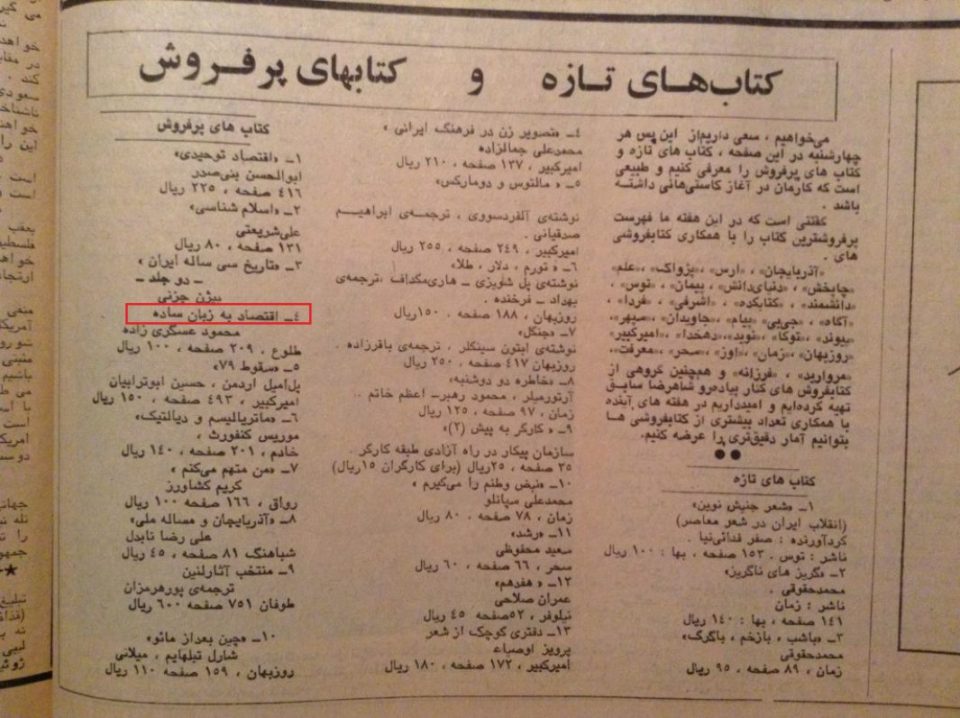 کتاب‌هـای تـازه و کتابهای پرفـروش
می‌خواهیم ، سعی داریم‌از این پس هر
چهارشنبه در این صفحه ، کتاب های تازه و
کتاب های پرفروش را معرفی کنیم و طبیعی
است که کارمان در آغاز کاستی‌هائی داشته
باشد .
گفتنی است که در این هفته ما فهرست
پرفروشترین کتاب را با همکاری کتابفروشی
های .
«آذربایجان» ، «ارس» ، «پژواک» ، «علم»
«چاپخش» ، «دنیای‌دانش» ، پیمان» ، «توس»
«دانشمند» ، «کتابکده» ، «اشرفی» ، «فردا» ،
«آگاه» ، «جی‌بی» «پیام» ، «جاویدان» ، «سپهر» ،
«پیوند» ، «توکا» ، «نوید» ، «دهخدا» ، «امیرکبیر»
«روزبهان» ، «زمان» ، «اوز» ، «سحر» ، «معرفت» ،
«مروارید» ، «فرزانه» و همچنین گروهی از
کتابفروش های کنار پیاده‌رو شاهرضا سابق
تهیه کرده‌ایم و امیدداریم در هفته های آینده
با همکاری تعداد بیشتری از کتابفروشی ها
بتوانیم آمار دقیق‌تری را عرضه کنیم.
کتاب های تازه
۱ـ «شعر جنبش نوین»
(انقلاب ایران در شعر معاصر)
گردآورنده : صفر فدائی‌نیا .
ناشر : توس . ۱۵۳ صفحه ، بها : ۱۰۰ ریال
۲ـ «گریز های ناگزیر»
محمدحقوقی .
ناشر : زمان
۱۴۱ صفحه ، بها : ۱۴۰ ریال
۳ـ «باشب ، بازخم ، باگرگ»
محمدحقوقی
زمان ، ۸۹ صفحه ، ۹۵ ریال
۴ـ «تصویر زن در فرهنگ ایرانی »
محمدعلی جمالزاده
امیرکبیر ، ۱۳۷ صفحه ، ۲۱۰ ریال
۵ـ « مالتوس و دومارکس»
نوشته‌ی آلفردسووی ، ترجمه‌ی ابراهیـم
صدقیانی .
امیرکبیر ، ۲۴۹ صفحه ، ۲۵۵ ریال
۶ـ « تورم ، دلار ، طلا»
نوشته‌ی پل شویزی ـ هاری‌مگداف ترجمه‌ی
بهداد ـ فرخنده .
روزبهان ، ۱۸۸ صفحه . ۱۵۰ریال
۷ـ «جنگل»
نوشته‌ی اپتون سینکلر . ترجمه‌ی باقرزاده .
روزبهان ۴۱۷ صفحه . ۲۵۰ ریال
۸ـ «خاطره دو دوشنبه»
آرتورمیلر ، محمود رهبرـ اعظم خاتم .
زمان ، ۹۷ صفحه ، ۱۲۵ ریال
۹ـ « کارگر به پیش (۲)»
سازمان پیکار در راه آزادی طبقه کارگر .
۳۵ صفحه ، ۲۵ریال (برای کارگران ۱۵ریال)
۱۰ـ «نبض وطنم را می‌گیرم »
محمدعلی سپانلو
زمان ، ۷۸ صفحه . ۸۰ ریال
۱۱ـ «رشد»
سعید محفوظی
سحر ، ۶۶ صفحه ، ۶۰ ریال
۱۲ـ « هفدهم»
عمران صلاحی
نیلوفر ، ۵۲صفحه ۴۵ ریال
۱۳ـ دفتری کوچک از شعر
پرویز اوصیاء
امیرکبیر ، ۱۷۲ صفحه ، ۱۸۰ ریال
کتاب های پرفروش
۱ـ «اقتصاد توحیدی»
ابوالحسن بنی‌صدر
۴۱۶ صفحه ، ۲۲۵ ریال
۲ـ «اسلام شناسی»
علی‌شریعتی
۱۳۱ صفحه ، ۸۰ ریال
۳ـ «تاریخ سی ساله ایران »
ـ دو جلد ـ
بیژن جزنی
۴ـ اقتصاد به زبان ساده
محمود عسگری زاده
طلوع ، ۲۰۹ صفحه ، ۱۰۰ ریال
۵ـ «سقوط ۷۹»
پل‌امیل اردمن ، حسین ابوترابیان
امیرکبیر ، ۴۹۳ صفحه ، ۱۵۰ ریال
۶ـ «ماتریالیسم و دیالتیک»
موریس کنفورث ،
خادم ، ۲۰۱ صفحه ، ۱۴۰ ریال
۷ـ «من متهم می‌کنم »
کریم کشاورز
رواق ، ۱۶۶ صفحه ۱۰۰ ریال
۸ـ «آذربایجان و مساله ملی»
علی رضا نابدل
شباهنگ ۸۱ صفحه ، ۴۵ ریال
۹ـ منتخب آثارلنین
ترجمه‌ی پورهرمزان
طوفان ۷۵۱ صفحه ۶۰۰ ریال
۱۰ـ «چین بعداز مائو»
شارل تبلهایم ، میلانی
روزبهان ، ۱۵۹ صفحه ۱۱۰ ریال